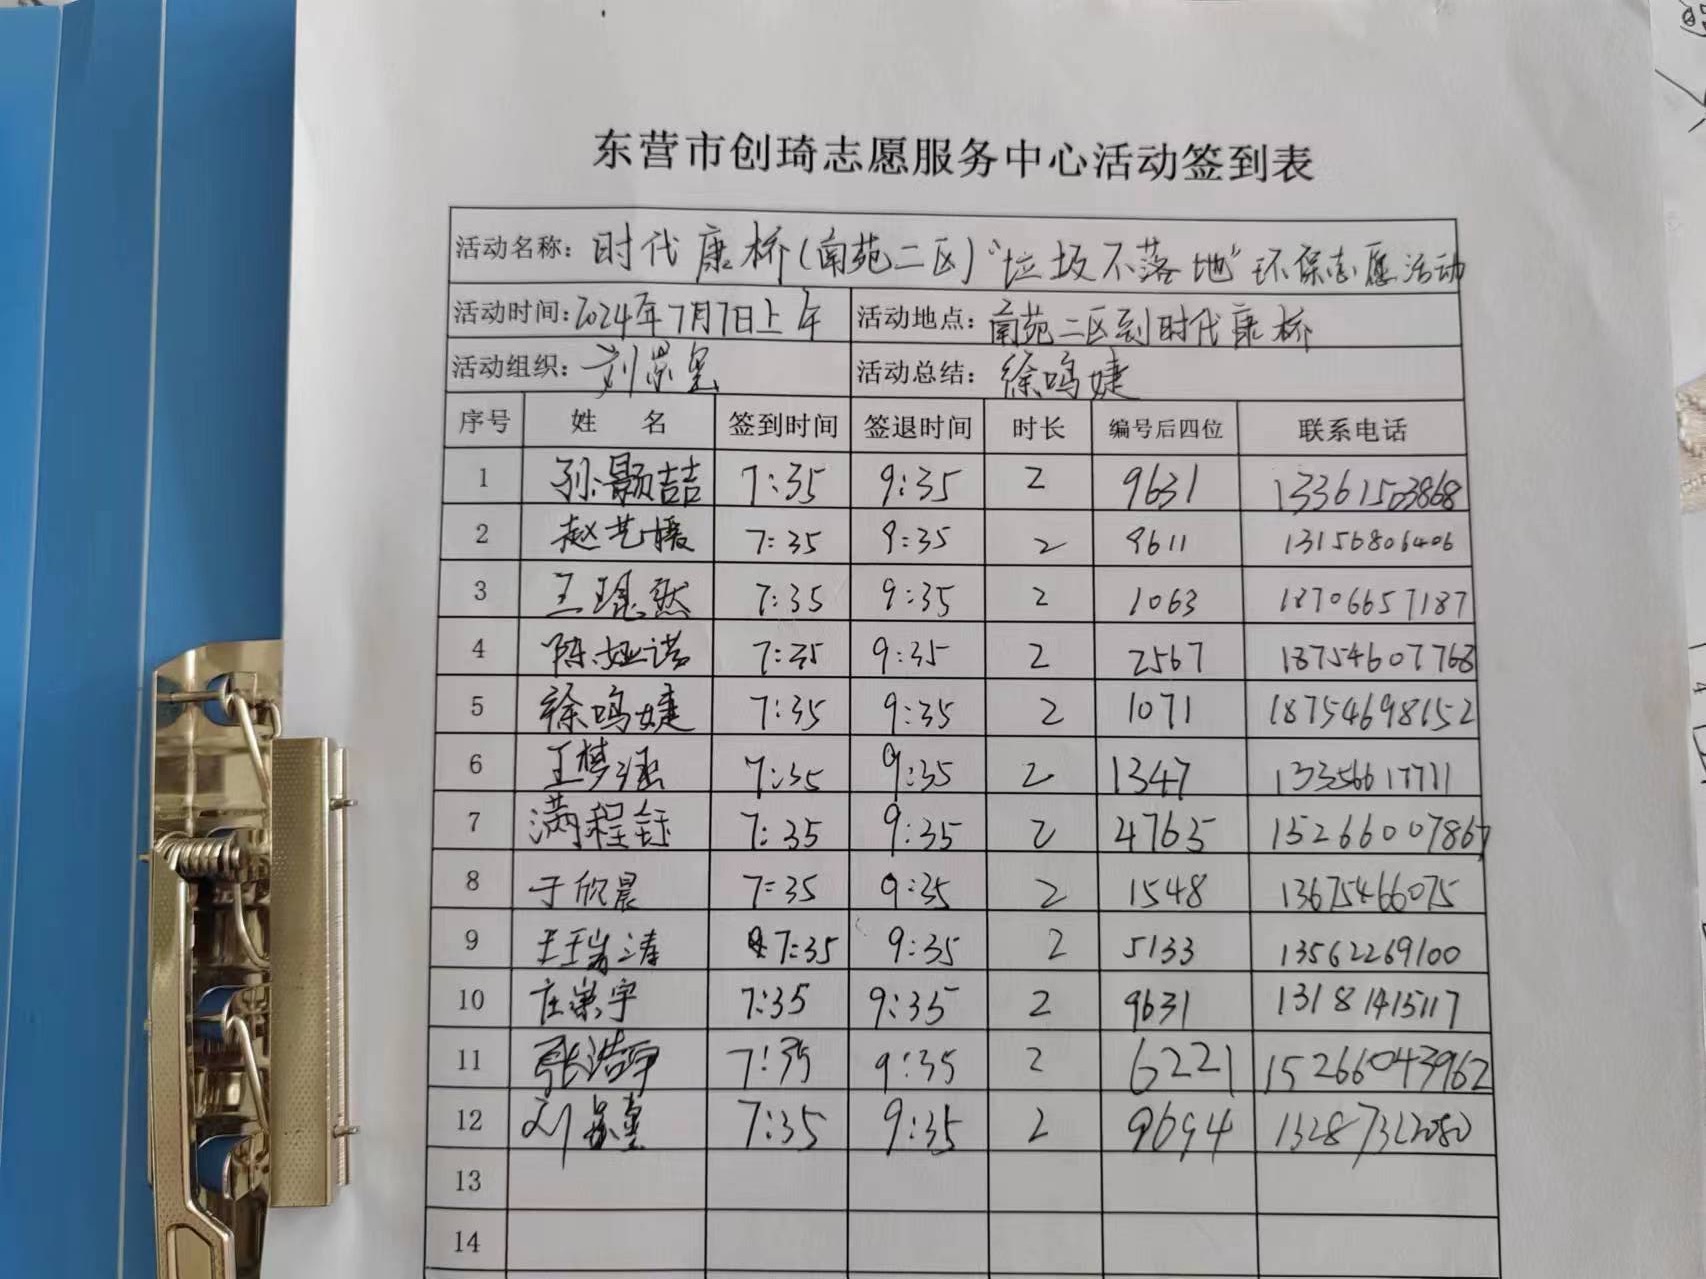 东营市创琦志愿服务中心活动签到表
活动名称：时代康桥(南苑二区)"垃圾不落地"环保志愿活动
活动时间：2024年7月7日上午 活动地点：南苑二区到时代康桥
活动组织：刘 活动总结：徐鸣婕
序号 姓 名 签到时间 签退时间 时长 编号后四位 联系电话
1 孙颢喆 7:35 9:35 2 9631 13361503868
2 赵艺媛 7:35 9:35 2 9611 13156806406
3 王瑾然 7:35 9:35 2 1063 18706657187
4 陈娅诺 7:35 9:35 2 2567 18754607768
5 徐鸣婕 7:35 9:35 2 1071 18754698152
6 王梦涵 7:35 9:35 2 1347
7 满程钰 7:35 9:35 2 4765 15266007867
8 于欣晨 7:35 9:35 2 1548 13675466075
9 王瑞涛 7:35 9:35 2 5133 13562269100
10 庄崇宇 7:35 9:35 2 9631 13181415117
11 张浩宇 7:35 9:35 2 6221 15266043962
12 刘 7:35 9:35 2 9694 13287322080
13
14